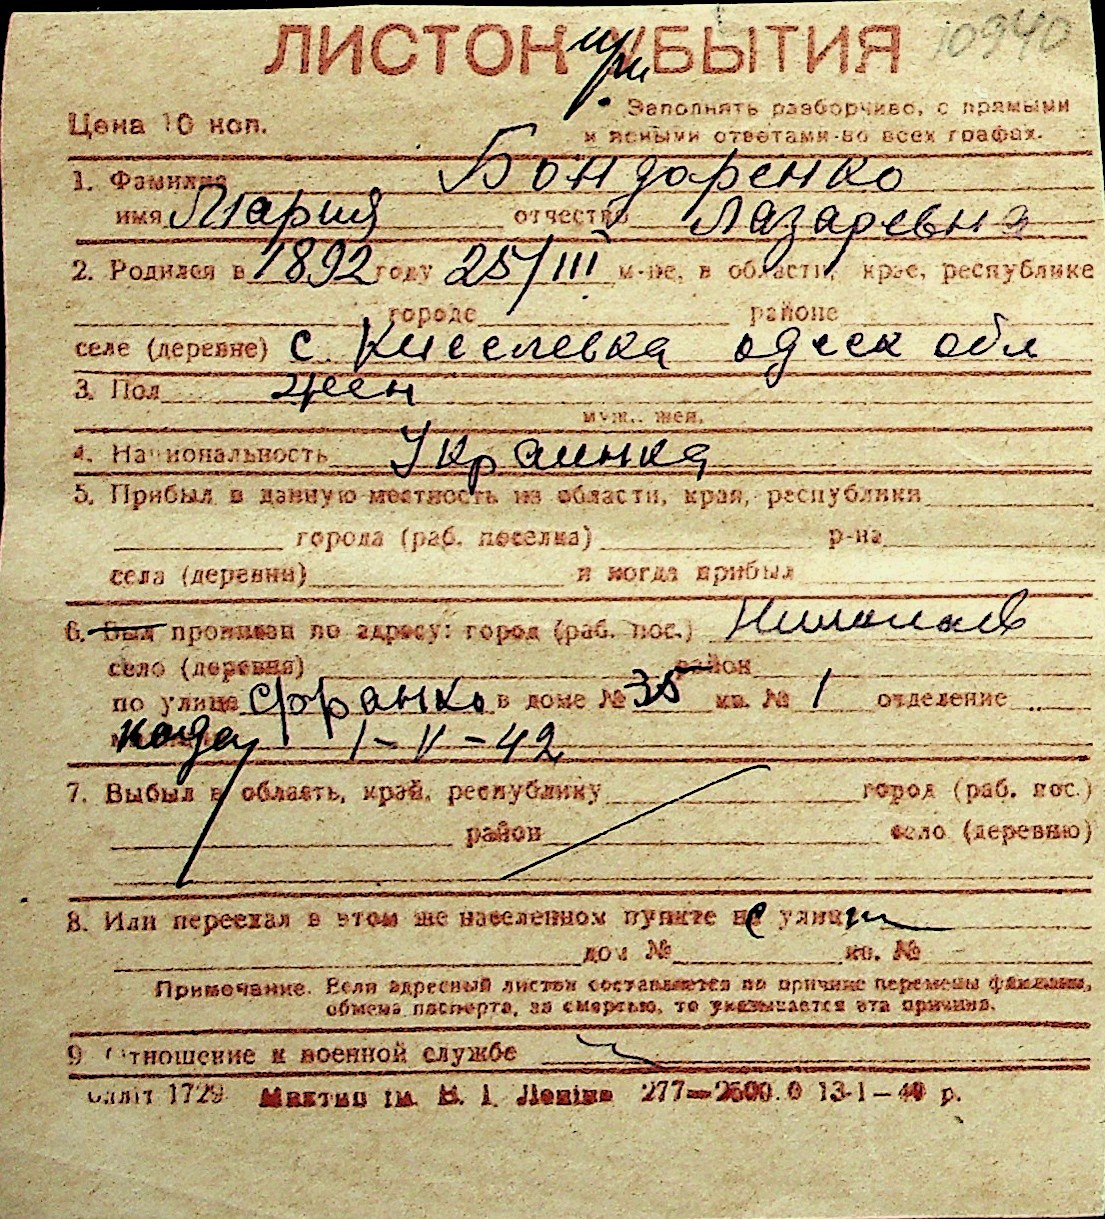 ЛИСТОК УБЫТИЯ
при
10940
Цена 10 коп.
Заполнять разборчиво, с прямыми
и ясными ответами во всех графах.
1. Фамилия Бондаренко
имя Мария отчество Лазаревна
2. Родился в 1892 году 25/III м-це, в области, крае, республике
городе районе
селе (деревне) с. Киселевка одеск обл
3. Пол жен
муж., жен.
4. Национальность Украинка
5. Прибыл в данную местность из области, края, республики
города (раб. поселка) р-на
села (деревни) и когда прибыл
6. Был проживал по адресу: город (раб. пос.) Николаев
село (деревня) район
по улице Франко в доме № 35 кв. № 1 отделение
когда 1-V-42
7. Выбыл в область, край, республику город (раб. пос.)
район село (деревню)
8. Или переехал в этом же населенном пункте с улицы
дом № кв. №
Примечание. Если адресный листок составляется по причине перемены фамилии,
обмена паспорта, за смертью, то указывается эта причина.
9 Отношение к военной службе
1729 ім. В. І. Леніна 277—2500.0 13-1—40 р.